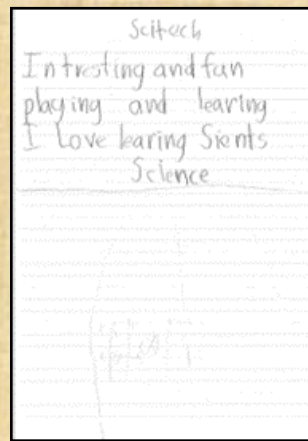 Scitech
Intresting and fun
playing and learing
I Love learing Sients
Science